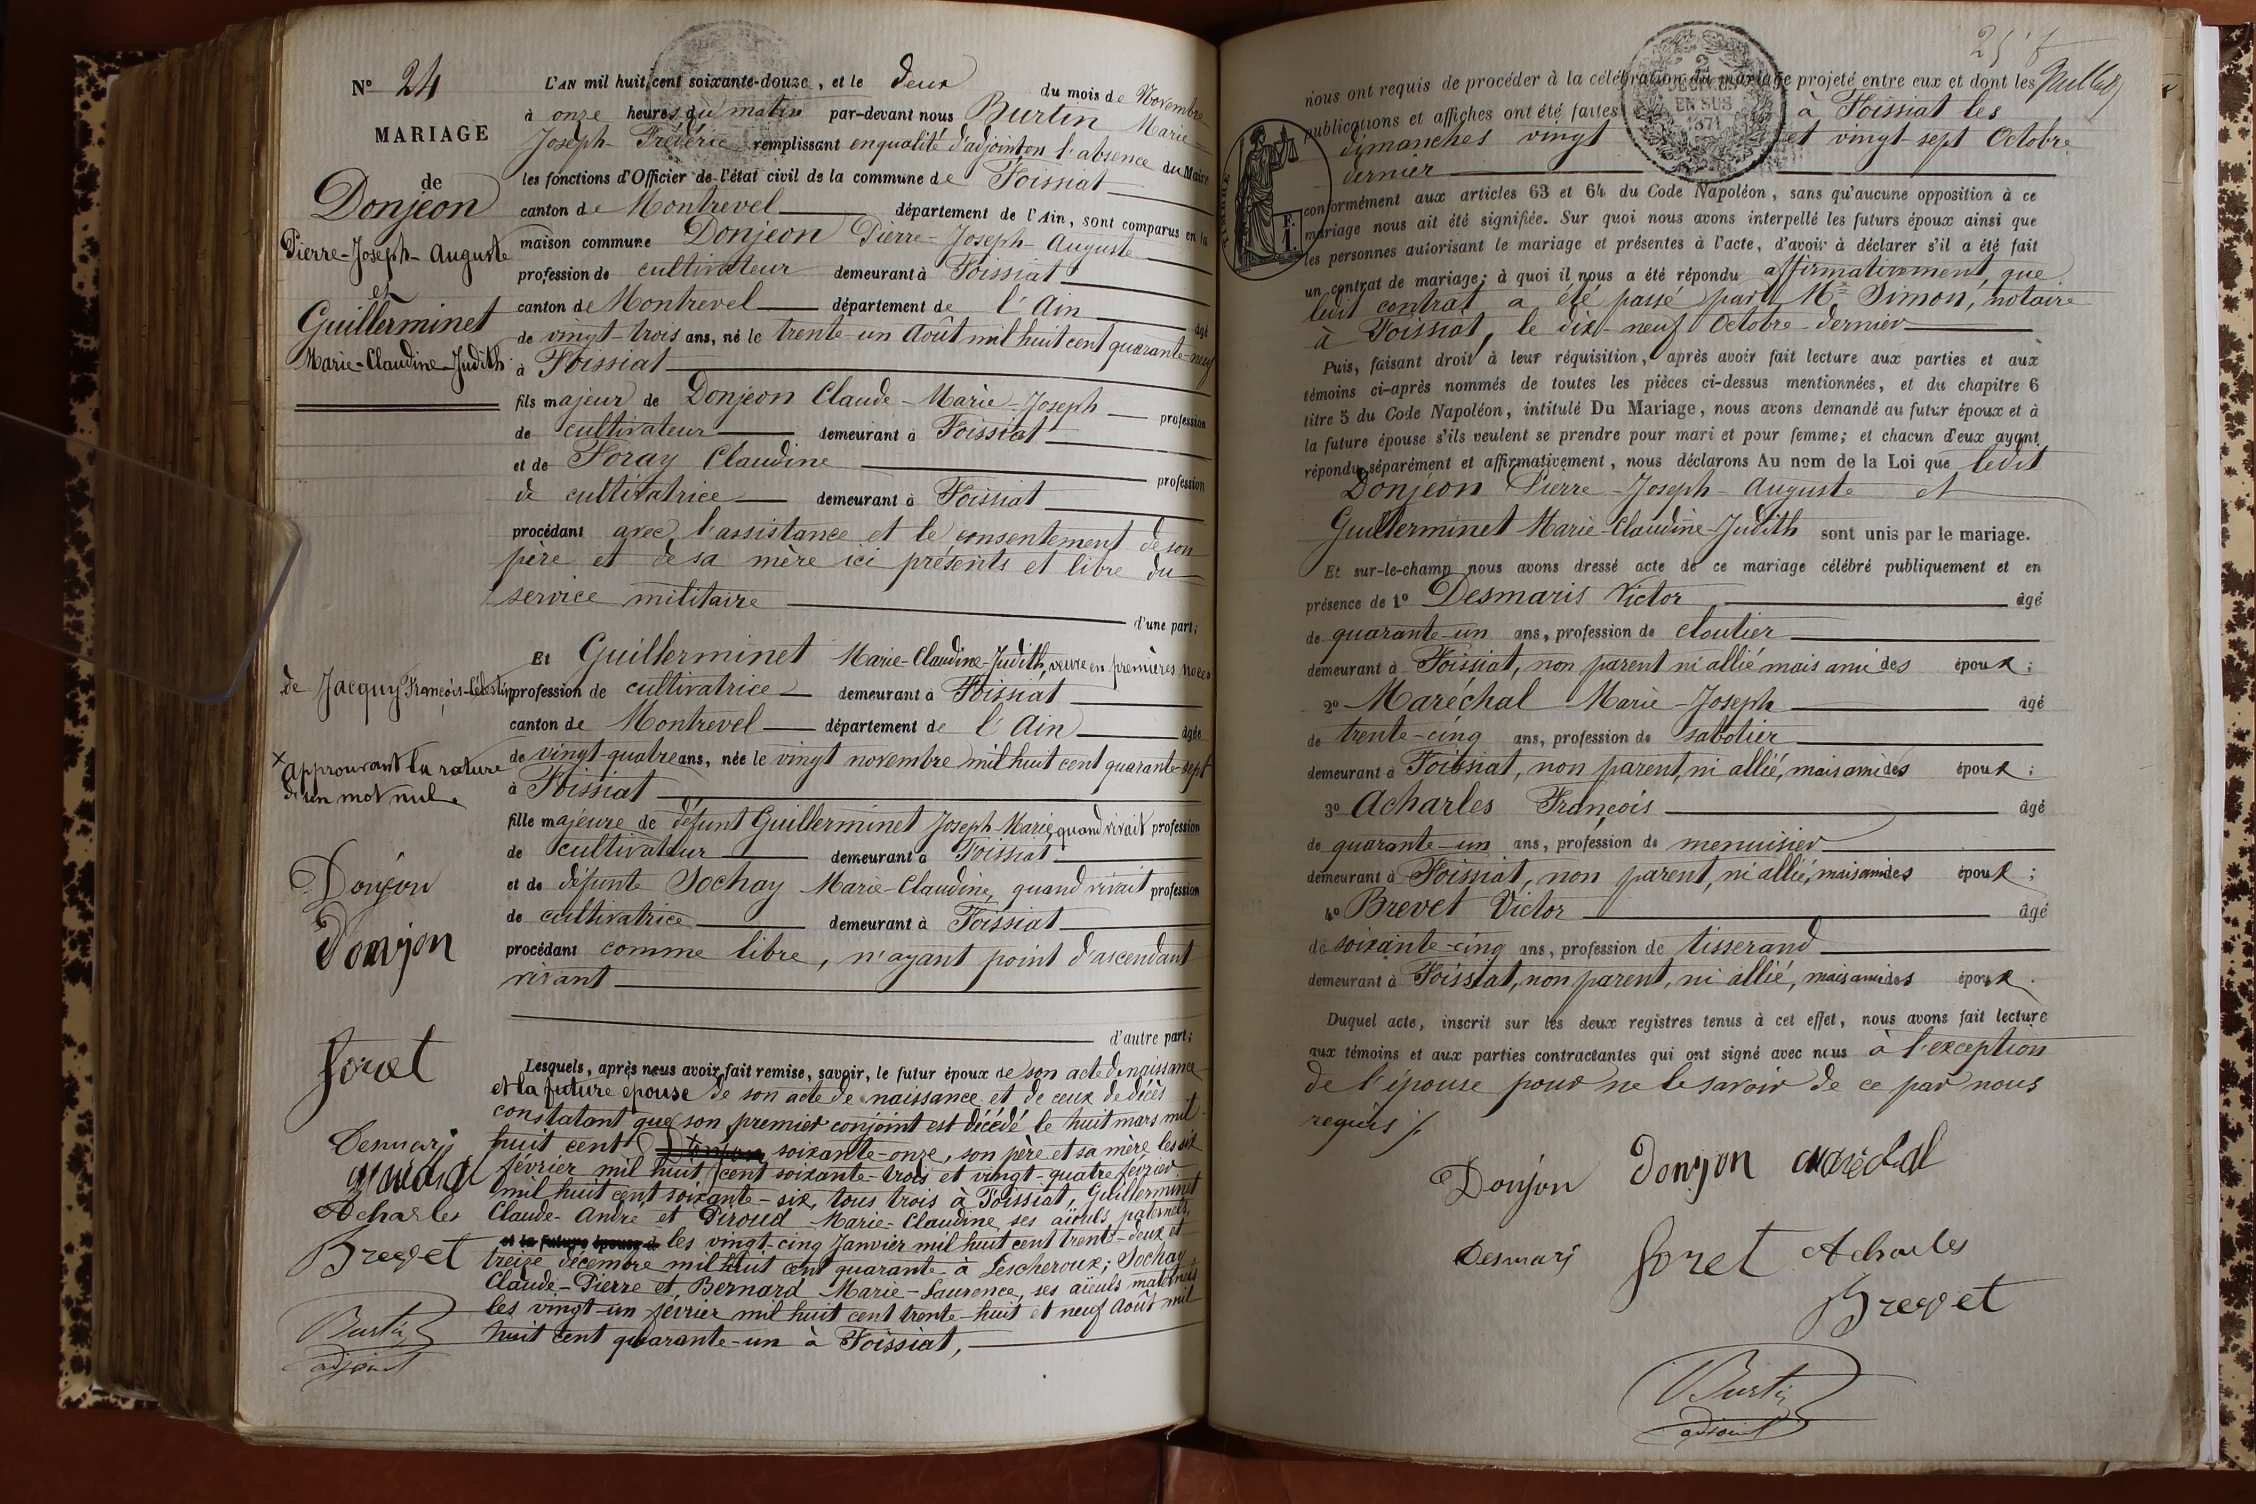 N° 24
MARIAGE
de
Donjeon
Pierre-Joseph-Auguste
et
Guillerminet
Marie-Claudine-Judith
L'AN mil huit cent soixante-douze, et le deux du mois de Novembre
à onze heures du matin par-devant nous Burtin Marie-
Joseph-Frédéric remplissant en qualité d'adjoint en l'absence du Maire
les fonctions d'Officier de l'état civil de la commune de Foissiat
canton de Montrevel département de l'Ain, sont comparus en la
maison commune Donjeon Pierre-Joseph-Auguste
profession de cultivateur demeurant à Foissiat
canton de Montrevel département de l'Ain âgé
de vingt-trois ans, né le trente-un Août mil huit cent quarante-neuf
à Foissiat
fils majeur de Donjeon Claude-Marie-Joseph profession
de cultivateur demeurant à Foissiat
et de Foray Claudine profession
de cultivatrice demeurant à Foissiat
procédant avec l'assistance et le consentement de son
père et de sa mère ici présents et libre du
service militaire
d'une part;
Et Guillerminet Marie-Claudine-Judith, veuve en premières noces
de Jacquy François-Célestin profession de cultivatrice demeurant à Foissiat
canton de Montrevel département de l'Ain âgée
de vingt-quatre ans, née le vingt novembre mil huit cent quarante-sept
à Foissiat
× approuvant la rature
d'un mot nul.
fille majeure de défunt Guillerminet Joseph-Marie, quand vivait profession
de cultivateur demeurant à Foissiat
et de défunte Sochay Marie-Claudine, quand vivait profession
de cultivatrice demeurant à Foissiat
procédant comme libre, n'ayant point d'ascendant
vivant
d'autre part;
Lesquels, après nous avoir fait remise, savoir, le futur époux de son acte de naissance
et la future épouse de son acte de naissance et de ceux de décès
constatant que son premier conjoint est décédé le huit mars mil
huit cent soixante-onze, son père et sa mère les six
février mil huit cent soixante-trois et vingt-quatre février
mil huit cent soixante-six, tous trois à Foissiat, Guillerminet
Claude-André et Piroud Marie-Claudine ses aïeuls paternels,
et la future épouse d les vingt-cinq Janvier mil huit cent trente-deux et
treize décembre mil huit cent quarante à Lescheroux; Sochay
Claude-Pierre et Bernard Marie-Laurence, ses aïeuls maternels
les vingt-un février mil huit cent trente-huit et neuf Août mil
huit cent quarante-un à Foissiat,
Donjon
Donjon
foret
Desmaris
maréchal
Acharles
Brevet
Burtin
adjoint
nous ont requis de procéder à la célébration du mariage projeté entre eux et dont les
publications et affiches ont été faites à Foissiat les
dimanches vingt et vingt-sept Octobre
dernier
2
DÉCIMES
EN SUS
1871
TIMBRE
1 F.
conformément aux articles 63 et 64 du Code Napoléon, sans qu'aucune opposition à ce
mariage nous ait été signifiée. Sur quoi nous avons interpellé les futurs époux ainsi que
les personnes autorisant le mariage et présentes à l'acte, d'avoir à déclarer s'il a été fait
un contrat de mariage; à quoi il nous a été répondu affirmativement, que
ledit contrat a été passé par Me Simon, notaire
à Foissiat, le dix-neuf Octobre dernier
Puis, faisant droit à leur réquisition, après avoir fait lecture aux parties et aux
témoins ci-après nommés de toutes les pièces ci-dessus mentionnées, et du chapitre 6
titre 5 du Code Napoléon, intitulé Du Mariage, nous avons demandé au futur époux et à
la future épouse s'ils veulent se prendre pour mari et pour femme; et chacun d'eux ayant
répondu séparément et affirmativement, nous déclarons Au nom de la Loi que ledit
Donjeon Pierre-Joseph-Auguste et
Guillerminet Marie-Claudine-Judith sont unis par le mariage.
Et sur-le-champ nous avons dressé acte de ce mariage célébré publiquement et en
présence de 1° Desmaris Victor âgé
de quarante-un ans, profession de cloutier
demeurant à Foissiat, non parent ni allié mais ami des époux;
2° Maréchal Marie-Joseph âgé
de trente-cinq ans, profession de sabotier
demeurant à Foissiat, non parent, ni allié, mais ami des époux;
3° Acharles François âgé
de quarante-un ans, profession de menuisier
demeurant à Foissiat, non parent, ni allié, mais ami des époux;
4° Brevet Victor âgé
de soixante-cinq ans, profession de tisserand
demeurant à Foissiat, non parent, ni allié, mais ami des époux.
Duquel acte, inscrit sur les deux registres tenus à cet effet, nous avons fait lecture
aux témoins et aux parties contractantes qui ont signé avec nous à l'exception
de l'épouse pour ne le savoir de ce par nous
requis ./.
Donjon Donjon maréchal
Desmaris foret Acharles
Brevet
Burtin
adjoint